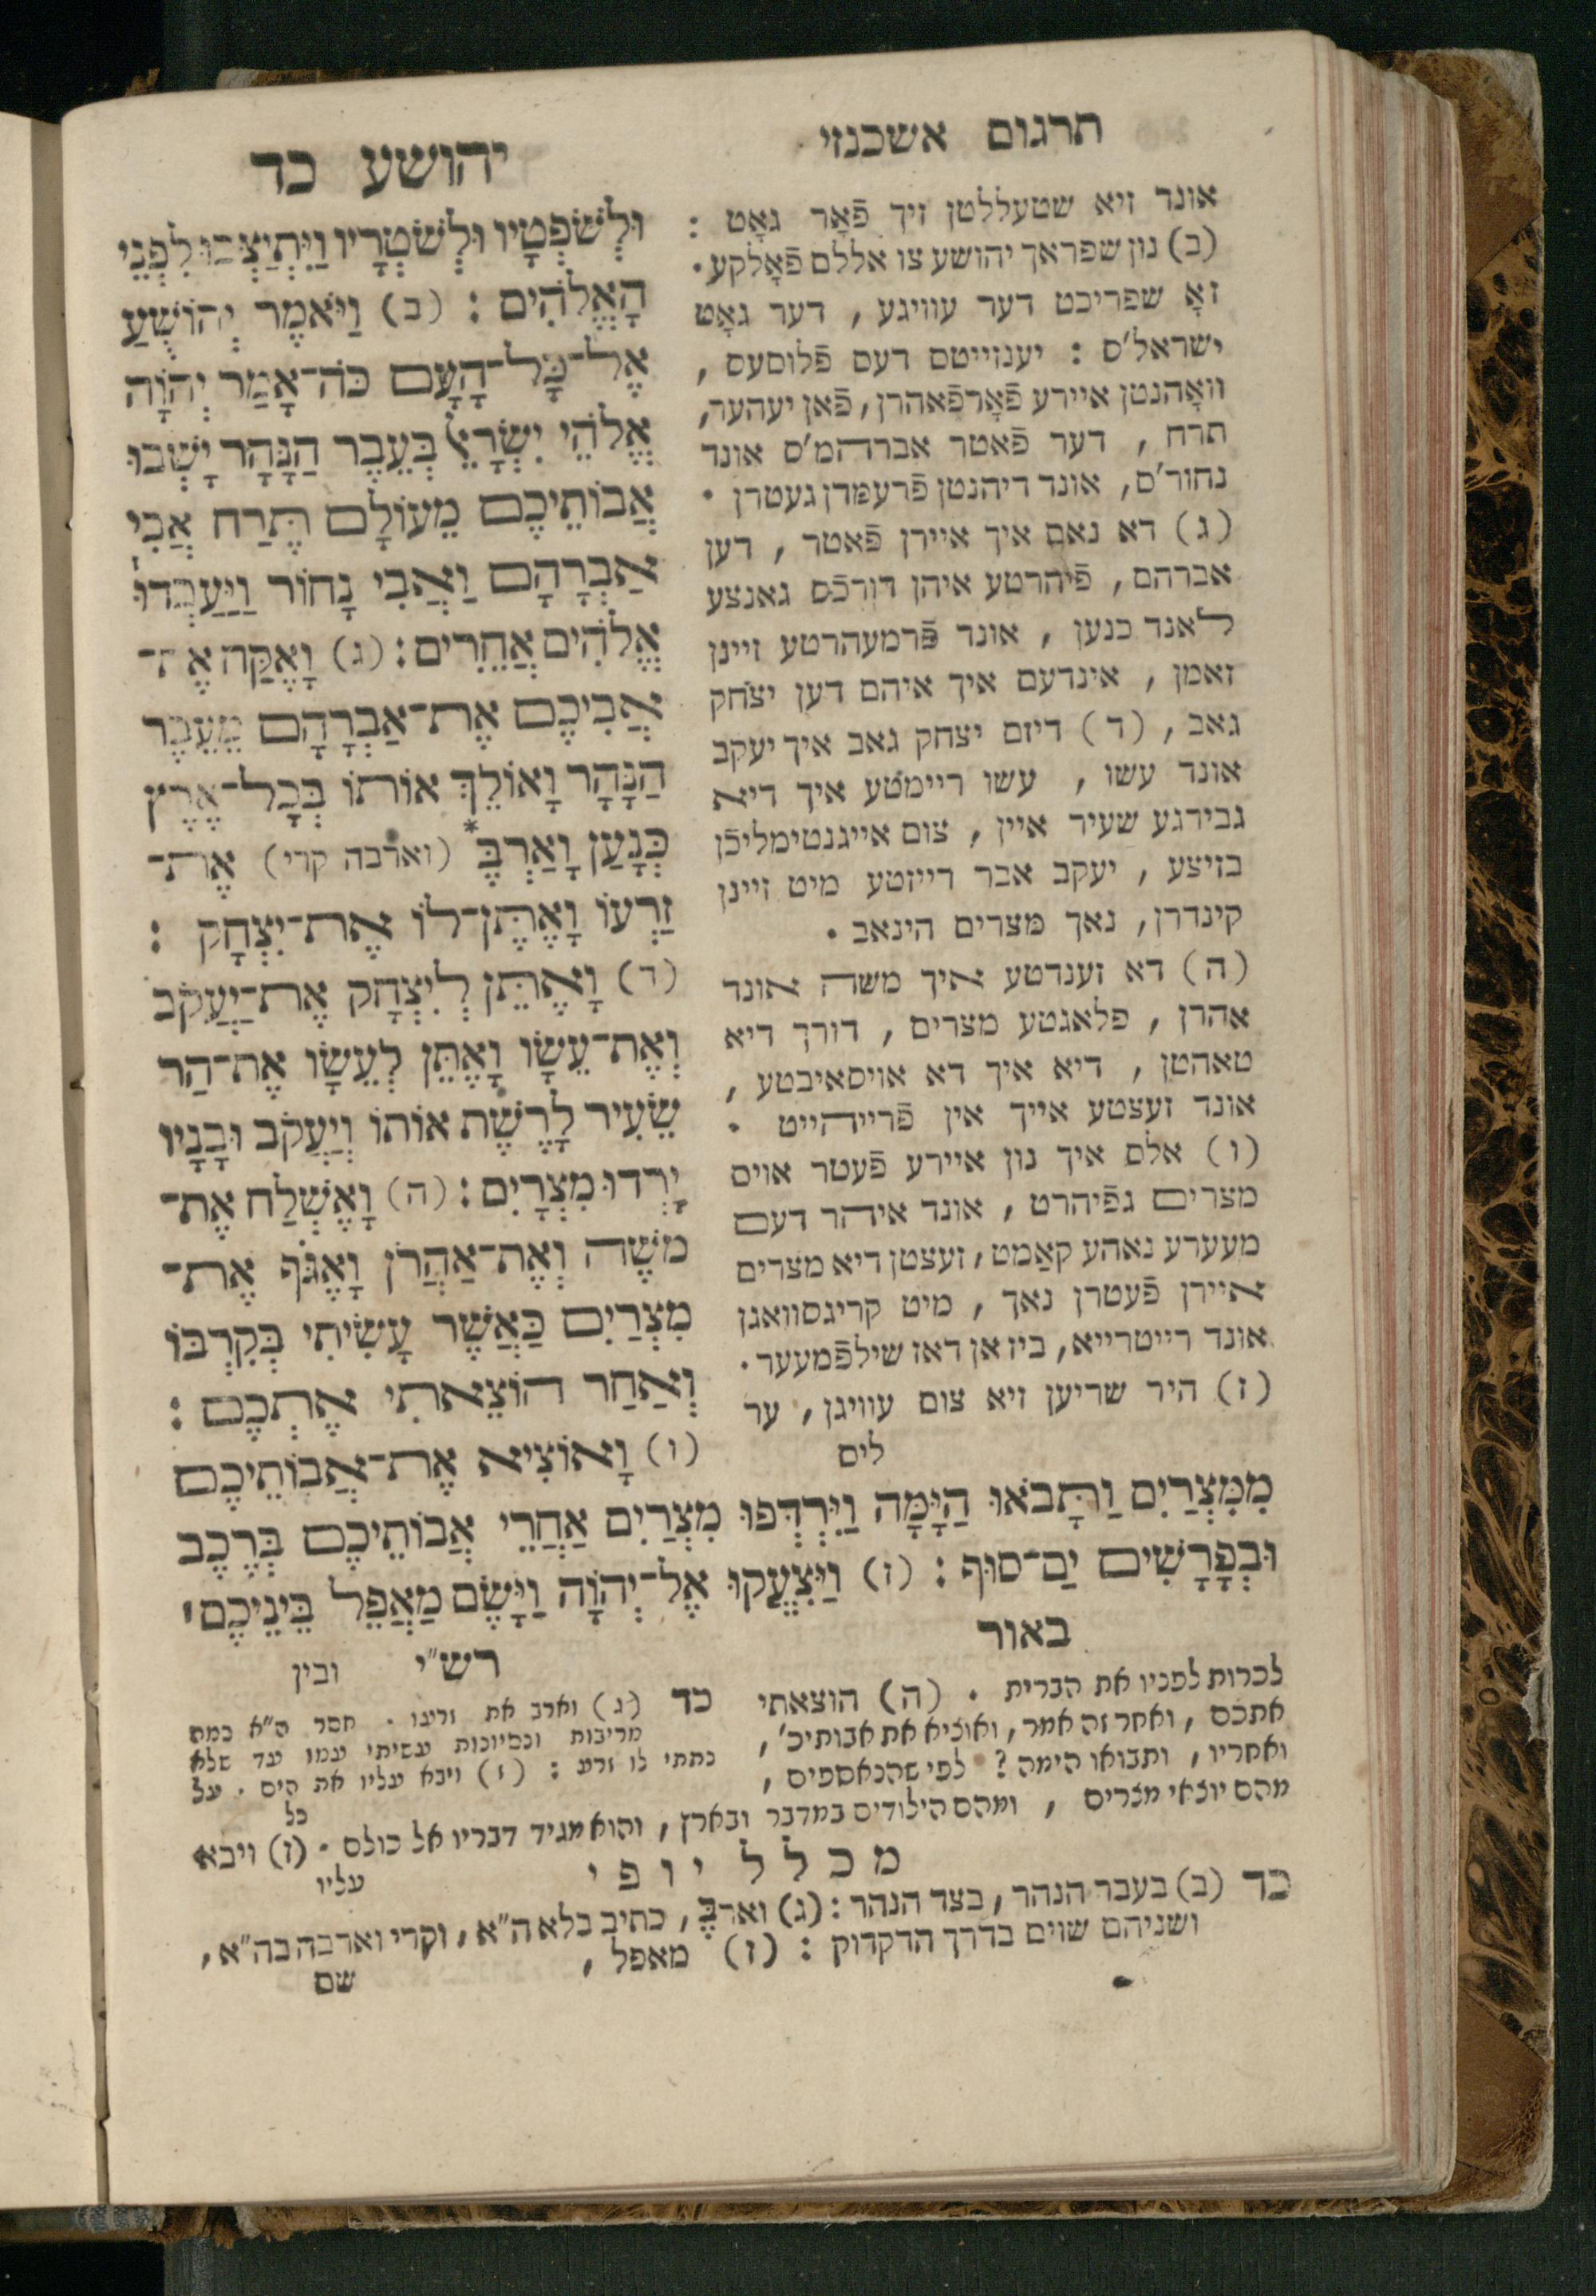 תרגום אשכנזי
אונד זיא שטעללטן זיך פֿאָר גאָט :
(ב) נון שפראך יהושע צו אללם פֿאָלקע .
זאָ שפריכט דער עוויגע , דער גאָט
ישראל'ס : יענזייטס דעס פֿלוסעס ,
וואָהנטן איירע פֿאָרפֿאהרן , פֿאן יעהער ,
תרח , דער פֿאטר אברהם'ס אונד
נחור'ס , אונד דיהנטן פֿרעמדן געטרן .
(ג) דא נאם איך איירן פֿאטר , דען
אברהם , פֿיהרטע איהן דורכֿס גאנצע
לאנד כנען , אונד פֿרמעהרטע זיינן
זאמן , אינדעם איך איהם דען יצחק
גאב , (ד) דיזם יצחק גאב איך יעקב
אונד עשו , עשו ריימטע איך דיא
גבירגע שעיר איין , צום אייגנטימליכֿן
בזיצע , יעקב אבר רייזטע מיט זיינן
קינדרן , נאך מצרים הינאב .
(ה) דא זענדטע איך משה אונד
אהרן , פלאגטע מצרים , דורך דיא
טאהטן , דיא איך דא אויסאיבטע ,
אונד זעצטע אייך אין פֿרייהייט .
(ו) אלס איך נון איירע פֿעטר אויס
מצרים געפֿיהרט , אונד איהר דעם
מעערע נאהע קאַמט , זעצטן דיא מצרים
איירן פֿעטרן נאך , מיט קריגסוואגן
אונד רייטרייא , ביז אן דאז שילפֿמעער .
(ז) היר שריען זיא צום עוויגן , ער
ליס
יהושע כד
וּלְשֹׁפְטָיו וּלְשֹׁטְרָיו וַיִּתְיַצְּבוּ לִפְנֵי
הָאֱלֹהִים : (ב) וַיֹּאמֶר יְהוֹשֻׁעַ
אֶל־כָּל־הָעָם כֹּה־אָמַר יְהֹוָה
אֱלֹהֵי יִשְׂרָאֵל בְּעֵבֶר הַנָּהָר יָשְׁבוּ
אֲבוֹתֵיכֶם מֵעוֹלָם תֶּרַח אֲבִי
אַבְרָהָם וַאֲבִי נָחוֹר וַיַּעַבְדוּ
אֱלֹהִים אֲחֵרִים : (ג) וָאֶקַּח אֶת־
אֲבִיכֶם אֶת־אַבְרָהָם מֵעֵבֶר
הַנָּהָר וָאוֹלֵךְ אוֹתוֹ בְּכָל־אֶרֶץ
כְּנָעַן וָאַרְבֶּ* (וארבה קרי) אֶת־
זַרְעוֹ וָאֶתֶּן־לוֹ אֶת־יִצְחָק :
(ד) וָאֶתֵּן לְיִצְחָק אֶת־יַעֲקֹב
וְאֶת־עֵשָׂו וָאֶתֵּן לְעֵשָׂו אֶת־הַר
שֵׂעִיר לָרֶשֶׁת אוֹתוֹ וְיַעֲקֹב וּבָנָיו
יָרְדוּ מִצְרָיִם : (ה) וָאֶשְׁלַח אֶת־
מֹשֶׁה וְאֶת־אַהֲרֹן וָאֶגֹּף אֶת־
מִצְרַיִם כַּאֲשֶׁר עָשִׂיתִי בְּקִרְבּוֹ
וְאַחַר הוֹצֵאתִי אֶתְכֶם :
(ו) וָאוֹצִיא אֶת־אֲבוֹתֵיכֶם
מִמִּצְרַיִם וַתָּבֹאוּ הַיָּמָּה וַיִּרְדְּפוּ מִצְרַיִם אַחֲרֵי אֲבוֹתֵיכֶם בְּרֶכֶב
וּבְפָרָשִׁים יַם־סוּף : (ז) וַיִּצְעֲקוּ אֶל־יְהֹוָה וַיָּשֶׂם מַאֲפֵל בֵּינֵיכֶם '
באור
לכרות לפניו את הברית . (ה) הוצאתי
אתכם , ואחר זה אמר , ואוציא את אבותיכ' ,
ואחריו , ותבואו הימה ? לפי שהנאספים ,
מהם יוצאי מצרים , ומהם הילודים במדבר ובארץ , והוא מגיד דבריו אל כולם . (ז) ויבא
עליו
רש"י ובין
כד (ג) וארב את זרעו . חסר ה"א כמה
מריבות ונסיונות עשיתי עמו עד שלא
נתתי לו זרע : (ז) ויבא עליו את הים . על
כל
מכלל יופי
כד (ב) בעבר הנהר , בצד הנהר : (ג) וארבֶּ , כתיב בלא ה"א , וקרי וארבה בה"א ,
ושניהם שוים בדרך הדקדוק : (ז) מאפל ,
שם